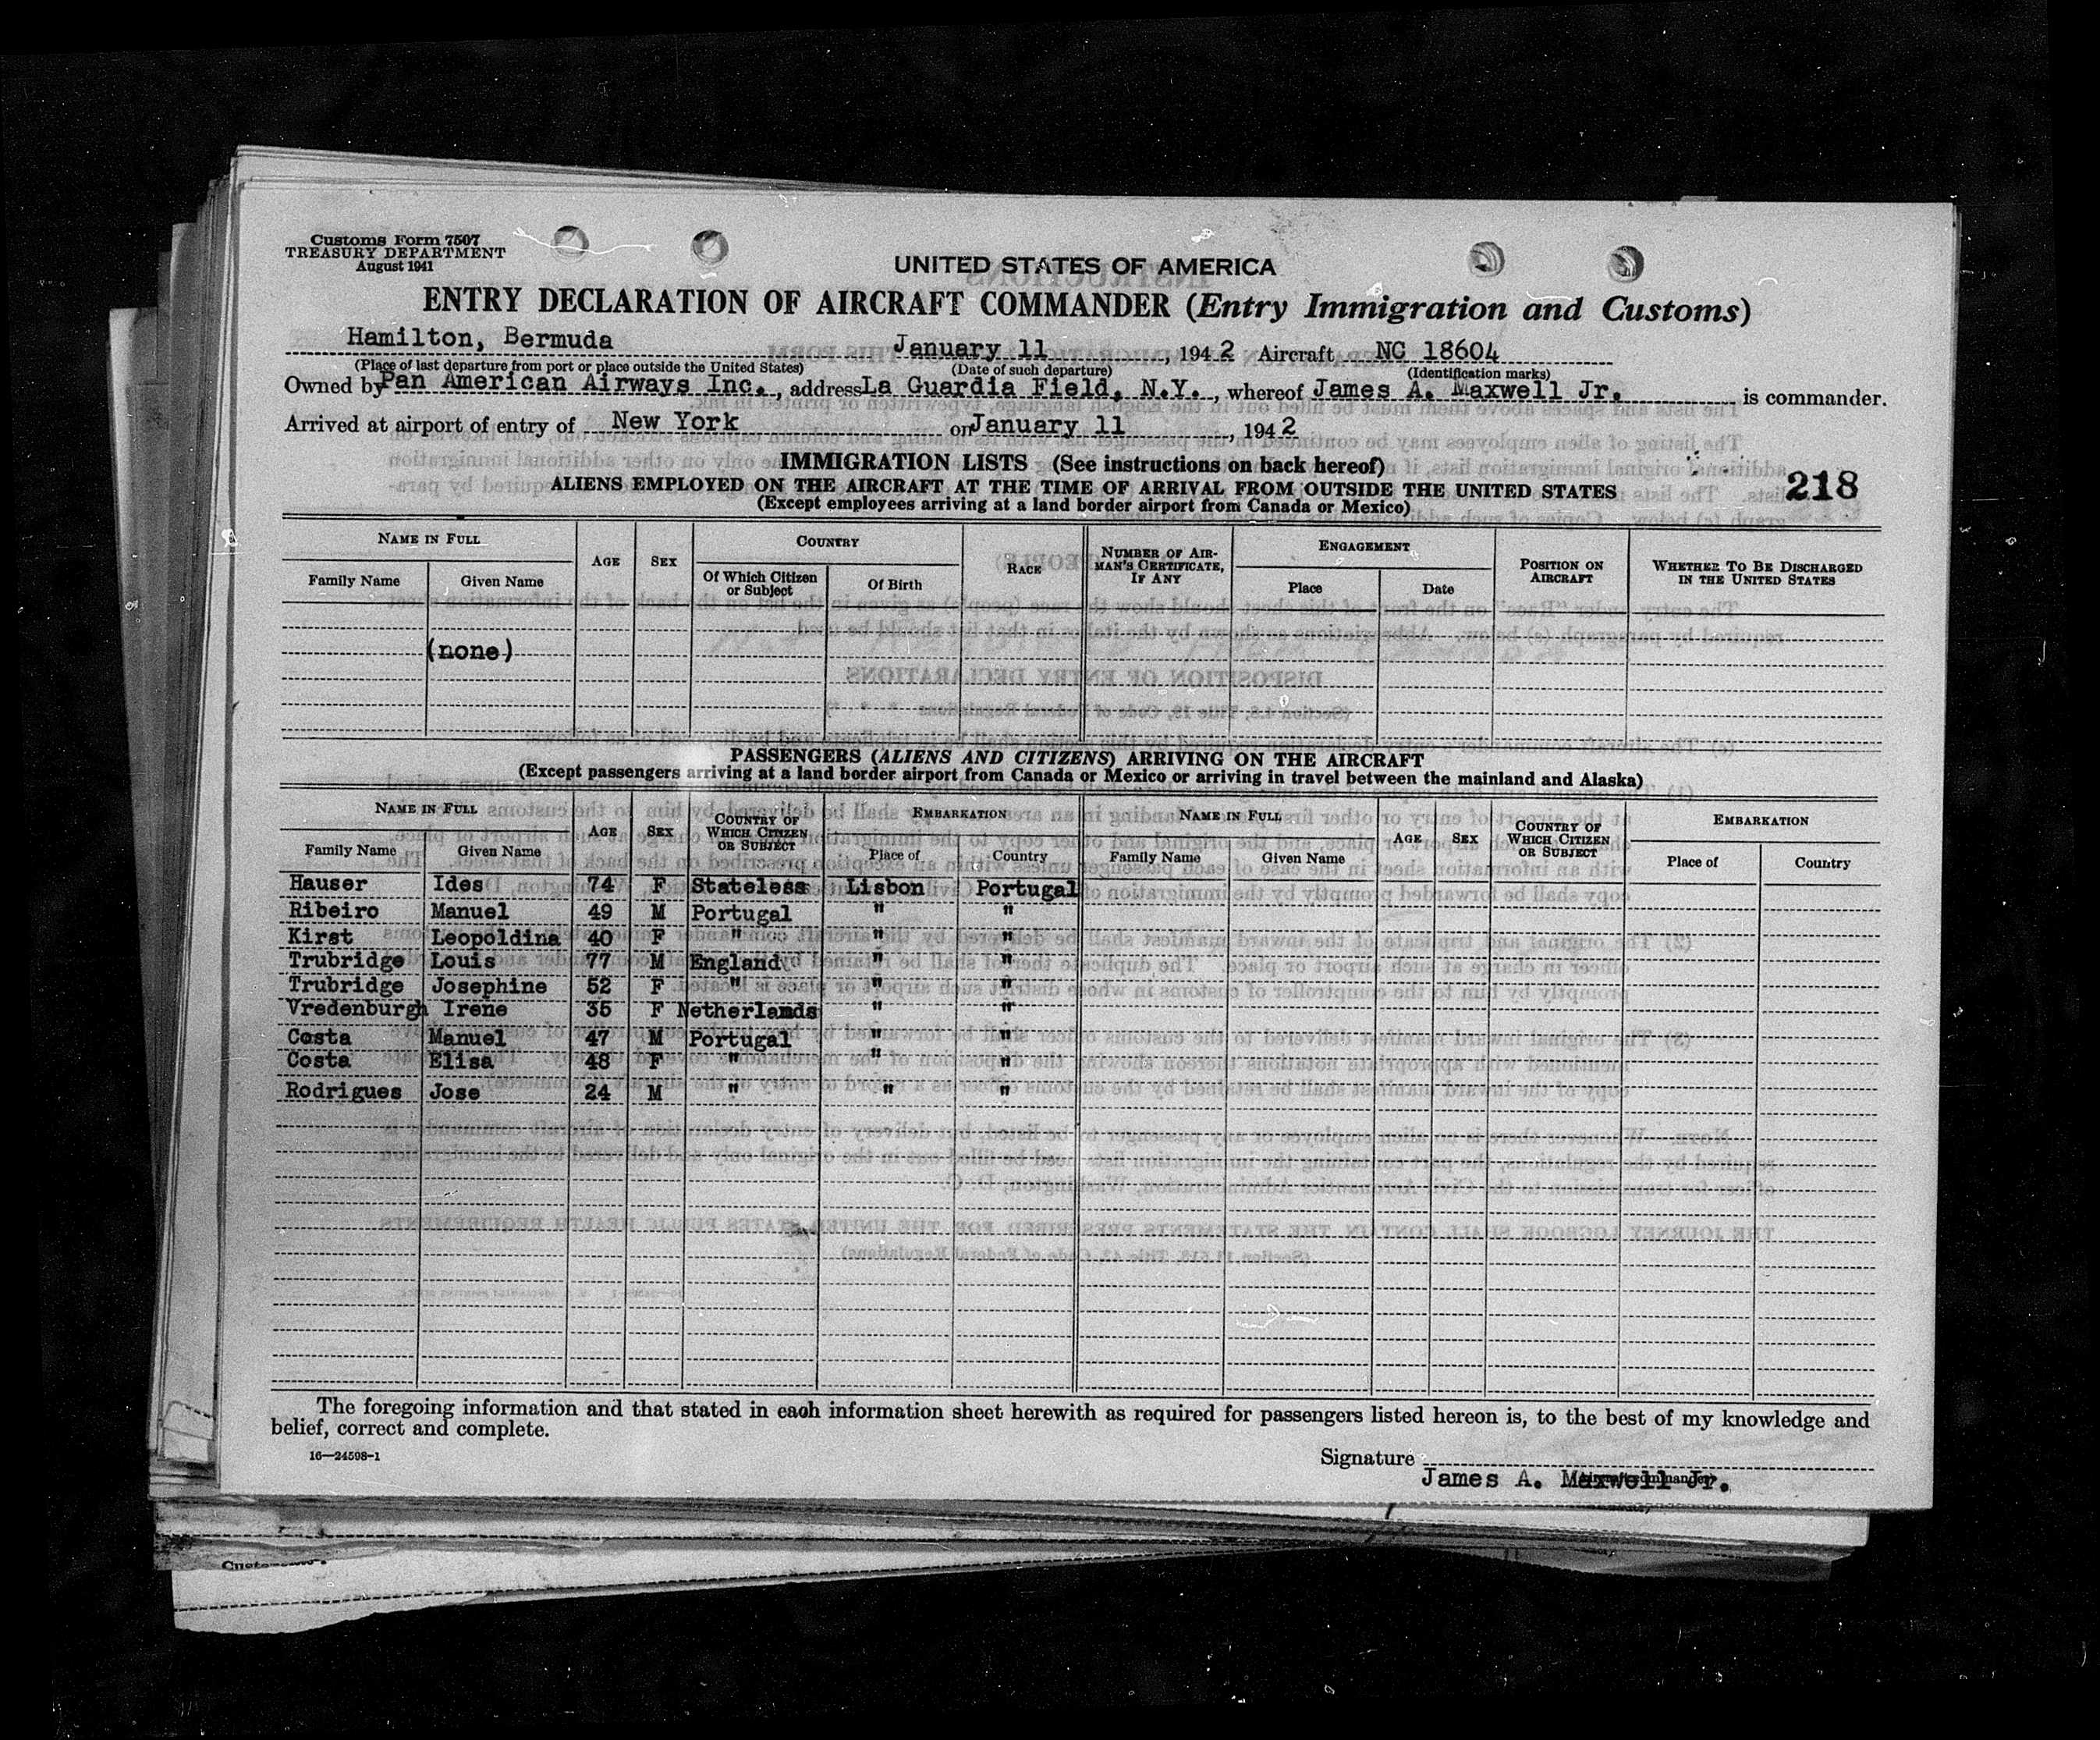 Customs Form 7507
TREASURY DEPARTMENT
August 1941
UNITED STATES OF AMERICA
ENTRY DECLARATION OF AIRCRAFT COMMANDER (Entry Immigration and Customs)
Hamilton, Bermuda January 11, 1942 Aircraft NC 18604
(Place of last departure from port or place outside the United States) (Date of such departure) (Identification marks)
Owned by Pan American Airways Inc., address La Guardia Field, N.Y., whereof James A. Maxwell Jr. is commander.
Arrived at airport of entry of New York on January 11, 1942
IMMIGRATION LISTS (See instructions on back hereof)
218
ALIENS EMPLOYED ON THE AIRCRAFT AT THE TIME OF ARRIVAL FROM OUTSIDE THE UNITED STATES
(Except employees arriving at a land border airport from Canada or Mexico)
NAME IN FULL AGE SEX COUNTRY RACE NUMBER OF AIRMAN'S CERTIFICATE, IF ANY ENGAGEMENT POSITION ON AIRCRAFT WHETHER TO BE DISCHARGED IN THE UNITED STATES
Family Name Given Name Of Which Citizen or Subject Of Birth Place Date
(none)
PASSENGERS (ALIENS AND CITIZENS) ARRIVING ON THE AIRCRAFT
(Except passengers arriving at a land border airport from Canada or Mexico or arriving in travel between the mainland and Alaska)
NAME IN FULL AGE SEX COUNTRY OF WHICH CITIZEN OR SUBJECT EMBARKATION NAME IN FULL AGE SEX COUNTRY OF WHICH CITIZEN OR SUBJECT EMBARKATION
Family Name Given Name Place of Country Family Name Given Name Place of Country
Hauser Ides 74 F Stateless Lisbon Portugal
Ribeiro Manuel 49 M Portugal " "
Kirst Leopoldina 40 F " " "
Trubridge Louis 77 M England " "
Trubridge Josephine 52 F " " "
Vredenburgh Irene 35 F Netherlands " "
Costa Manuel 47 M Portugal " "
Costa Elisa 48 F " " "
Rodrigues Jose 24 M " " "
The foregoing information and that stated in each information sheet herewith as required for passengers listed hereon is, to the best of my knowledge and
belief, correct and complete.
16—24598-1
Signature
(Aircraft commander)
James A. Maxwell Jr.